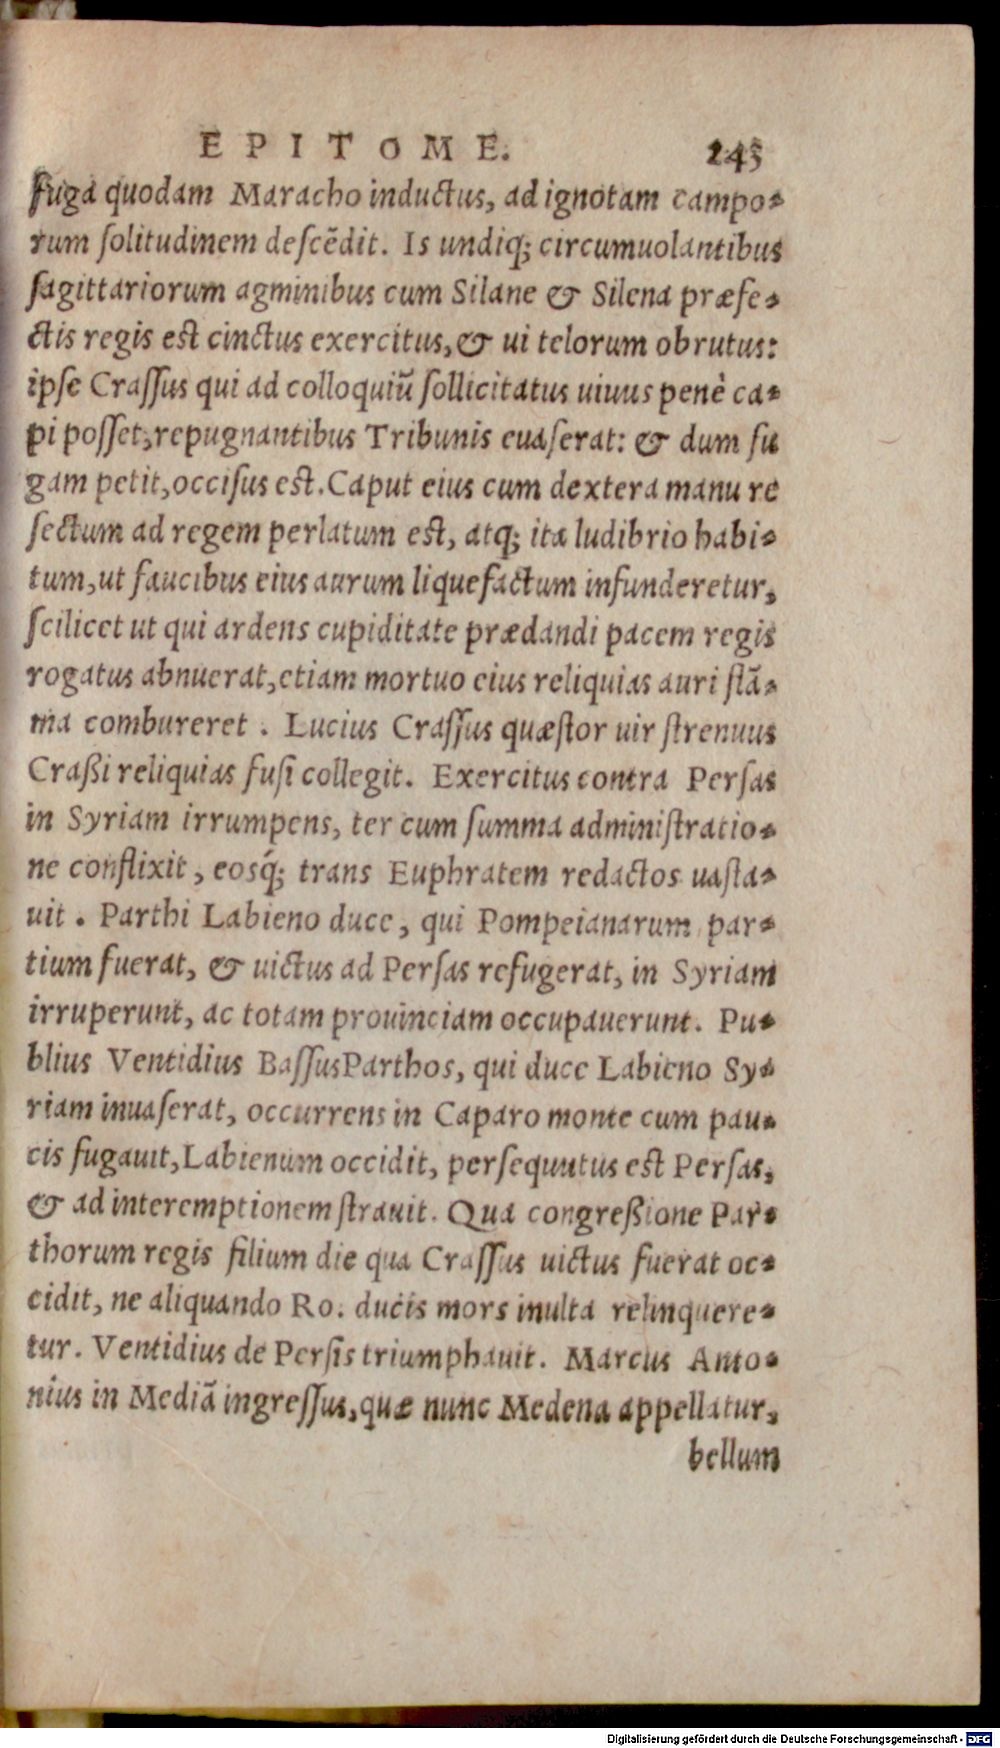 EPITOME. 243
fuga quodam Maracho inductus, ad ignotam campo-
rum solitudinem descẽdit. Is undiq; circumuolantibus
sagittariorum agminibus cum Silane & Silena præfe-
ctis regis est cinctus exercitus, & ui telorum obrutus:
ipse Crassus qui ad colloquiũ sollicitatus uiuus penè ca-
pi posset, repugnantibus Tribunis euaserat: & dum fu
gam petit, occisus est. Caput eius cum dextera manu re
sectum ad regem perlatum est, atq; ita ludibrio habi-
tum, ut faucibus eius aurum liquefactum infunderetur,
scilicet ut qui ardens cupiditate prædandi pacem regis
rogatus abnuerat, etiam mortuo eius reliquias auri flã-
ma combureret. Lucius Crassus quæstor uir strenuus
Craßi reliquias fusi collegit. Exercitus contra Persas
in Syriam irrumpens, ter cum summa administratio-
ne conflixit, eosq́; trans Euphratem redactos uasta-
uit. Parthi Labieno duce, qui Pompeianarum par-
tium fuerat, & uictus ad Persas refugerat, in Syriam
irruperunt, ac totam prouinciam occupauerunt. Pu-
blius Ventidius Bassus Parthos, qui duce Labieno Sy-
riam inuaserat, occurrens in Caparo monte cum pau-
cis fugauit, Labienum occidit, persequutus est Persas,
& ad interemptionem strauit. Qua congreßione Par-
thorum regis filium die qua Crassus uictus fuerat oc-
cidit, ne aliquando Ro. ducis mors inulta relinquere-
tur. Ventidius de Persis triumphauit. Marcus Anto-
nius in Mediã ingressus, quæ nunc Medena appellatur,
bellum
Digitalisierung gefördert durch die Deutsche Forschungsgemeinschaft - DFG